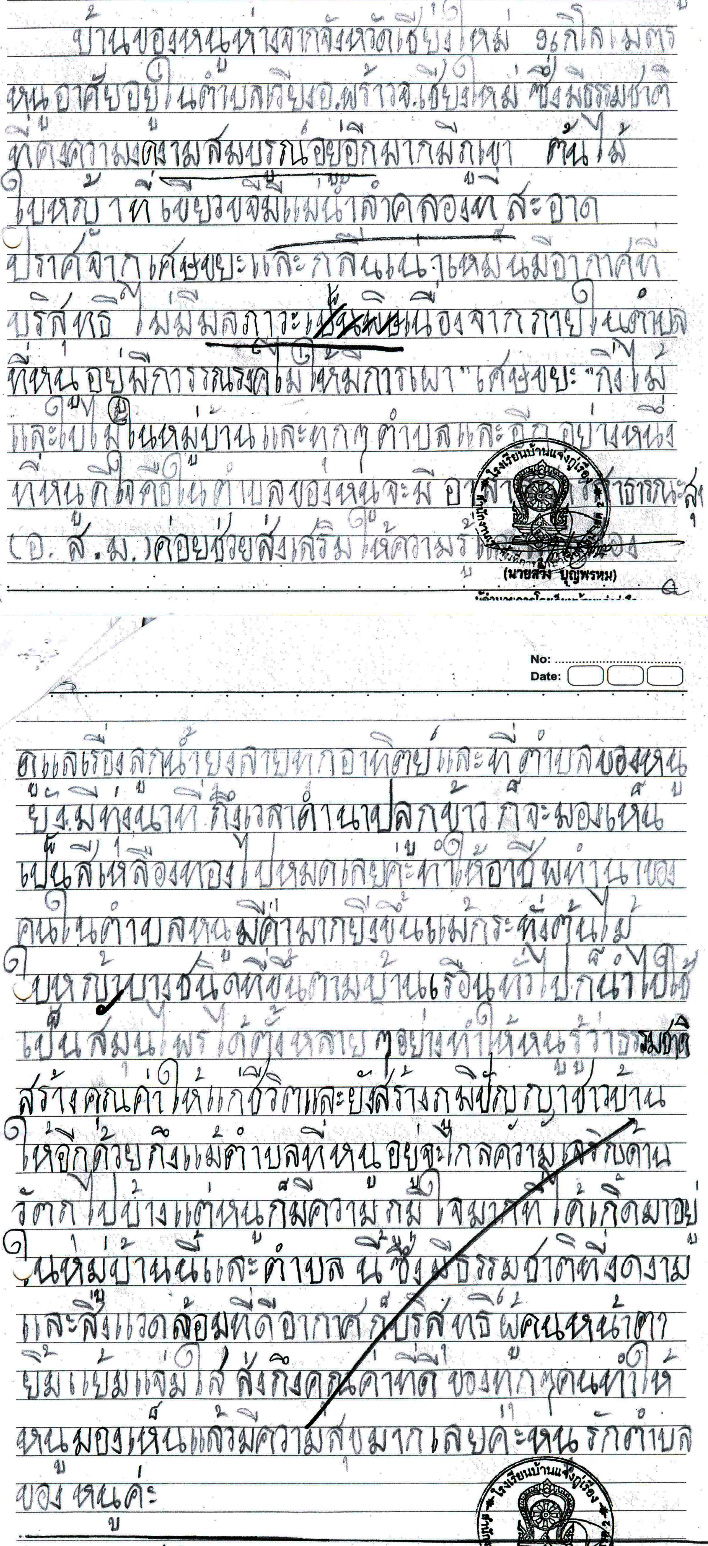 บ้านของหนูห่างจากจังหวัดเชียงใหม่ ๑๐กิโลเมตร
หนูอาศัยอยู่ในตำบลเวียงอ.พร้าวจ.เชียงใหม่ ซึ่งมีธรรมชาติ
ที่คงความงดงามสมบูรณ์อยู่อีกมากมีภูเขา ต้นไม้
ใบหญ้าที่เขียวขจีมีแม่น้ำลำคลองที่สะอาด
ปราศจากเศษขยะและกลิ่นเน่าเหม็นมีอากาศที่
บริสุทธิ์ ไม่มีมลภาวะเนื่องจากภายในตำบล
ที่หนูอยู่มีการรณรงค์ไม่ให้มีการเผา "เศษขยะ" กิ่งไม้
และใบไม้ในหมู่บ้านและทุกๆตำบลและอีกอย่างหนึ่ง
ที่หนูดีใจคือในตำบลของหนูจะมี สาธารณะสุข
(อ.ส.ม.)ค่อยช่วยส่งเสริมให้ความรู้
โรงเรียนบ้านแจ่งกู่เรือง
(นายสวิง บุญพรหม)
No:
Date:
ดูแลเรื่องลูกน้ำยุงลายทุกอาทิตย์และที่ตำบลของหนู
ยังมีทุ่งนาที่ถึงเวลาดำนาปลูกข้าวก็จะมองเห็น
เป็นสีเหลืองทองไปหมดเลยค่ะทำให้อาชีพทำนาของ
คนในตำบลหนูมีค่ามากยิ่งขึ้นแม้กระทั่งต้นไม้
ใบหญ้าบางชนิดที่ขึ้นตามบ้านเรือนทั่วไปก็นำไปใช้
เป็นสมุนไพรได้ตั้งหลายๆอย่างทำให้หนูรู้ว่าธรรมชาติ
สร้างคุณค่าให้แก่ชีวิตและยังสร้างภูมิปัญญาชาวบ้าน
ให้อีกด้วยถึงแม้ตำบลที่หนูอยู่จะไกลความเจริญด้าน
วัตถุไปบ้างแต่หนูก็มีความภูมิใจมากที่ได้เกิดมาอยู่
ในหมู่บ้านนี้และตำบลนี้ซึ่งมีธรรมชาติที่งดงาม
และสิ่งแวดล้อมที่ดีอากาศก็บริสุทธิ์ผู้คนหน้าตา
ยิ้มแย้มแจ่มใส สั่งถึงคุณค่าที่ดีของทุกๆคนทำให้
หนูมองเห็นแล้วมีความสุขมากเลยค่ะหนูรักตำบล
ของหนูค่ะ
โรงเรียนบ้านแจ่งกู่เรือง